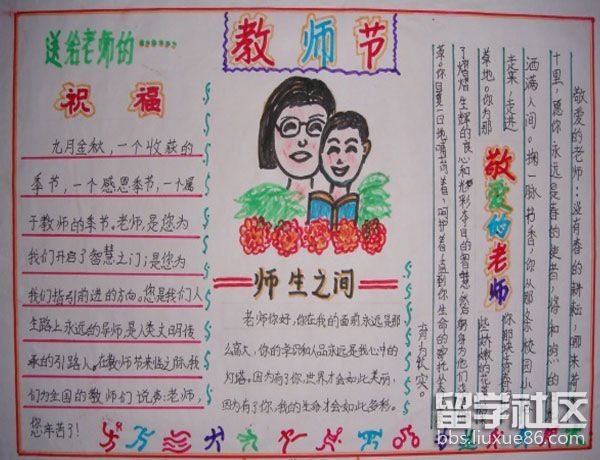 送给老师的……
祝福
九月金秋，一个收获的
季节，一个感恩季节，一个属
于教师的季节。老师，是您为
我们开启了智慧之门；是您为
我们指引前进的方向。您是我们人
生路上永远的导师，是人类文明传
承的引路人。在教师节来临之际，我
们为全国的教师们说声：老师，
您辛苦了！
教师节
师生之间
老师你好，你在我的面前永远是那
么高大，你的学识和人品永远是我心中的
灯塔。因为有了你，世界才会如此美丽，
因为有了你，我的生命才会如此多彩。
敬爱的老师
敬爱的老师：没有春的耕耘，哪来
十里，愿你永远是春的使者，将和
洒满人间。掬一脉书香，你从那条校园小
走来，走进
草地。你为那
你那
些娇嫩的花
了熠熠生辉的良心和光彩夺目的智慧，然后
草。你日复一日地哺育着，呵护着，直到你生命的
育为长实。
留学社区
bbs.liuxue86.com